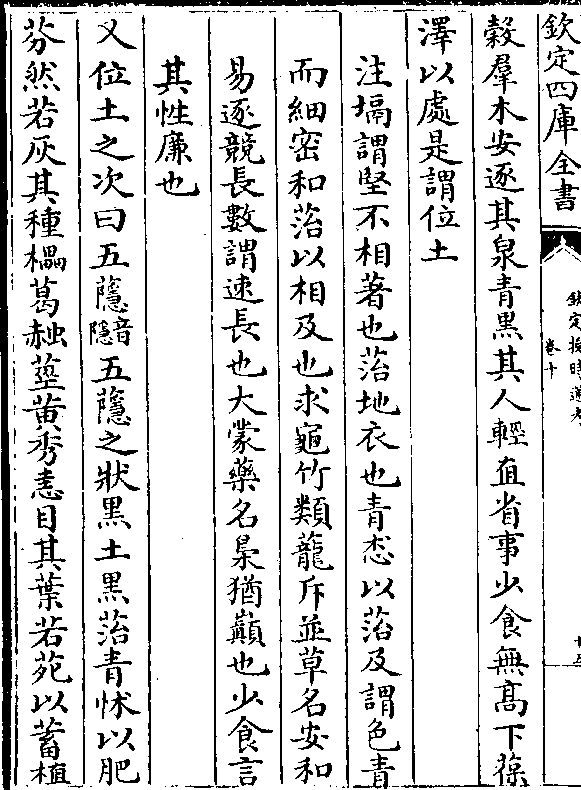 欽定四庫全書
欽定授時通考
卷十
穀羣木安逐其泉青黑其人輕直省事少食無高下葆
澤以處是謂位土
注塥謂堅不相著也菭地衣也青怸以菭及謂色青
而細密和菭以相及也求黽竹類龍斥並草名安和
易逐競長數謂速長也大蒙藥名梟猶巔也少食言
其性廉也
又位土之次曰五蘟蘟音隱五蘟之狀黑土黑菭青怵以肥
芬然若灰其種櫑葛赨莖黄秀恚目其葉若苑以蓄植